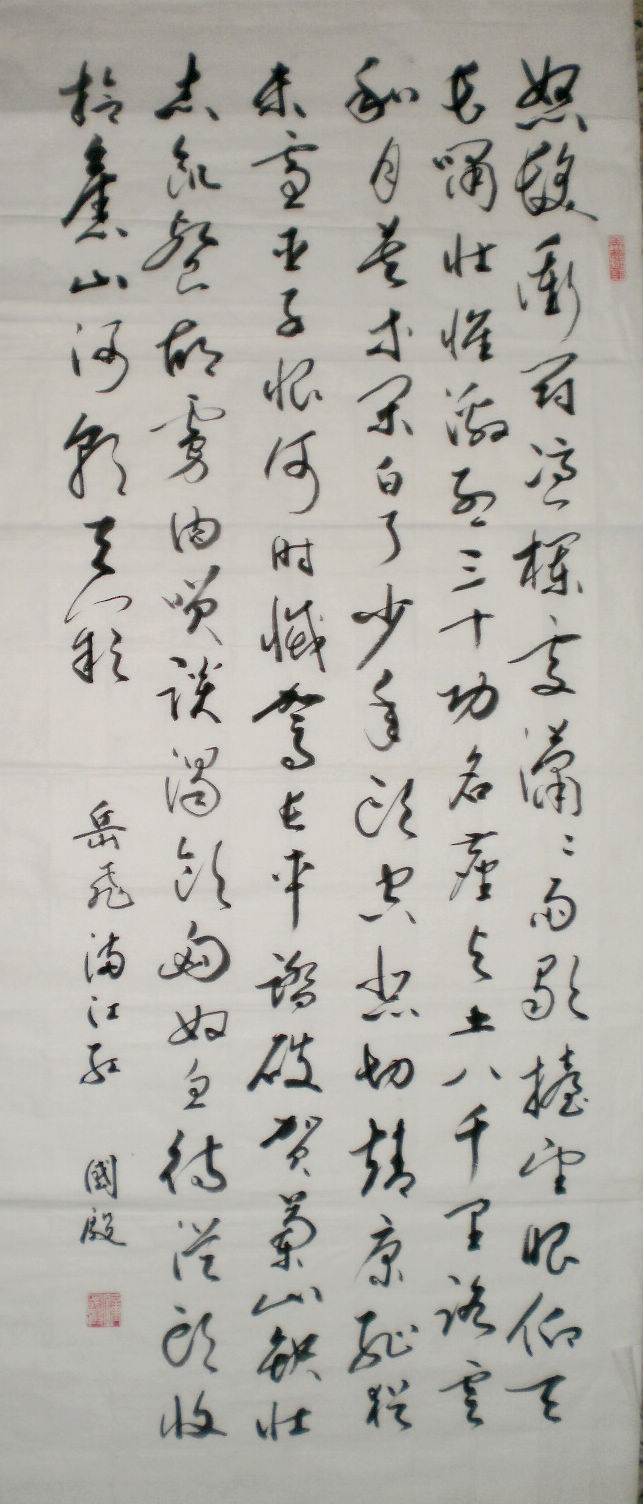 怒髮衝冠憑欄處瀟〻雨歇擡望眼仰天
長嘯壯懷激烈三十功名塵與土八千里路雲
和月莫等閑白了少年頭空悲切靖康恥猶
未雪臣子恨何时憾駕長車踏破賀蘭山缺壯
志飢餐胡虜肉咲談渴飲匈奴血待從頭收
拾舊山河朝天闕
岳飛滿江紅 國殿